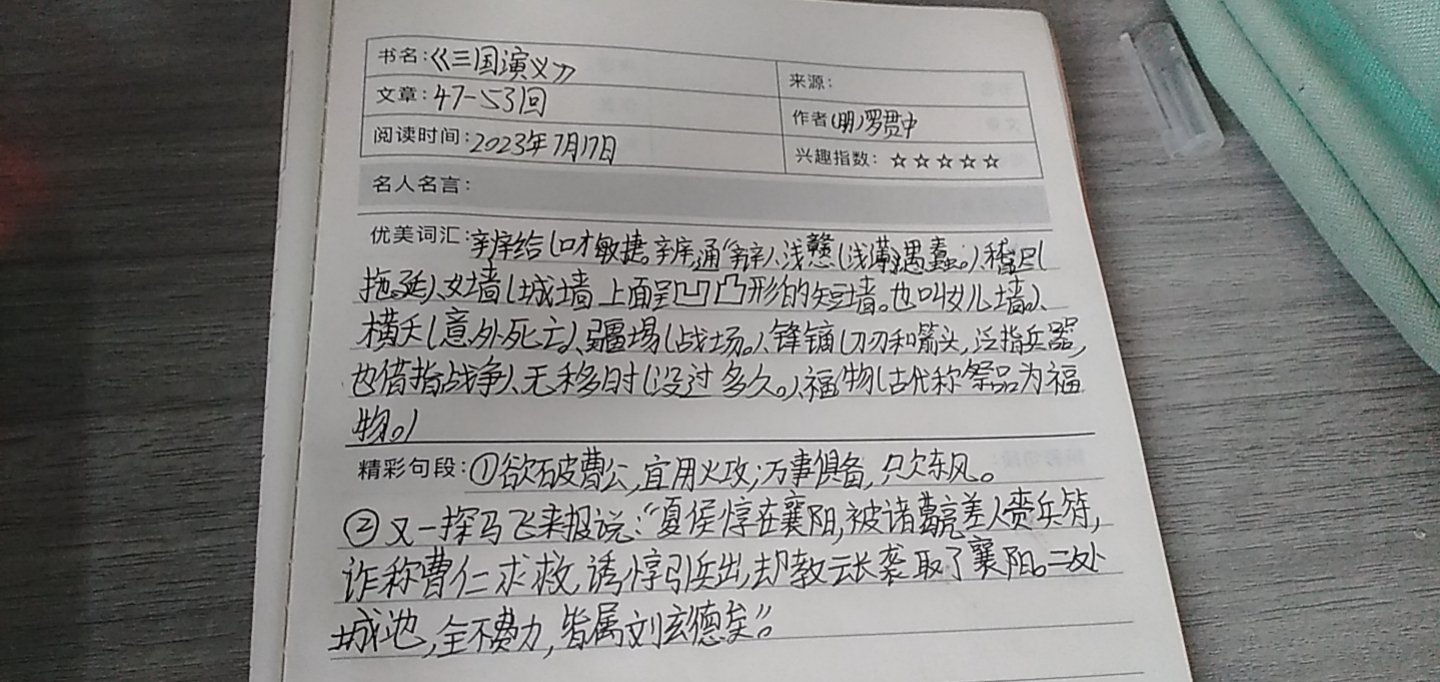 书名:《三国演义》
来源:
文章:47-53回
作者(明)罗贯中
阅读时间:2023年7月17日
兴趣指数:☆☆☆☆☆
名人名言:
优美词汇:辨给(口才敏捷。辨通“辩”)、浅戆(浅薄愚蠢。)、稽迟(
拖延)、女墙(城墙上面呈凹凸形的矮墙。也叫女儿墙。)、
横夭(意外死亡。)、疆埸(战场。)、锋镝(刀刃和箭头,泛指兵器,
也借指战争)、无移时(没过多久。)、福物(古代称祭品为福
物。)
精彩句段:①欲破曹公,宜用火攻;万事俱备,只欠东风。
②又一探马飞来报说:“夏侯惇在襄阳,被诸葛亮差人赍兵符,
诈称曹仁求救,诱惇引兵出,却教云长袭取了襄阳。二处
城池,全不费力,皆属刘玄德矣。”